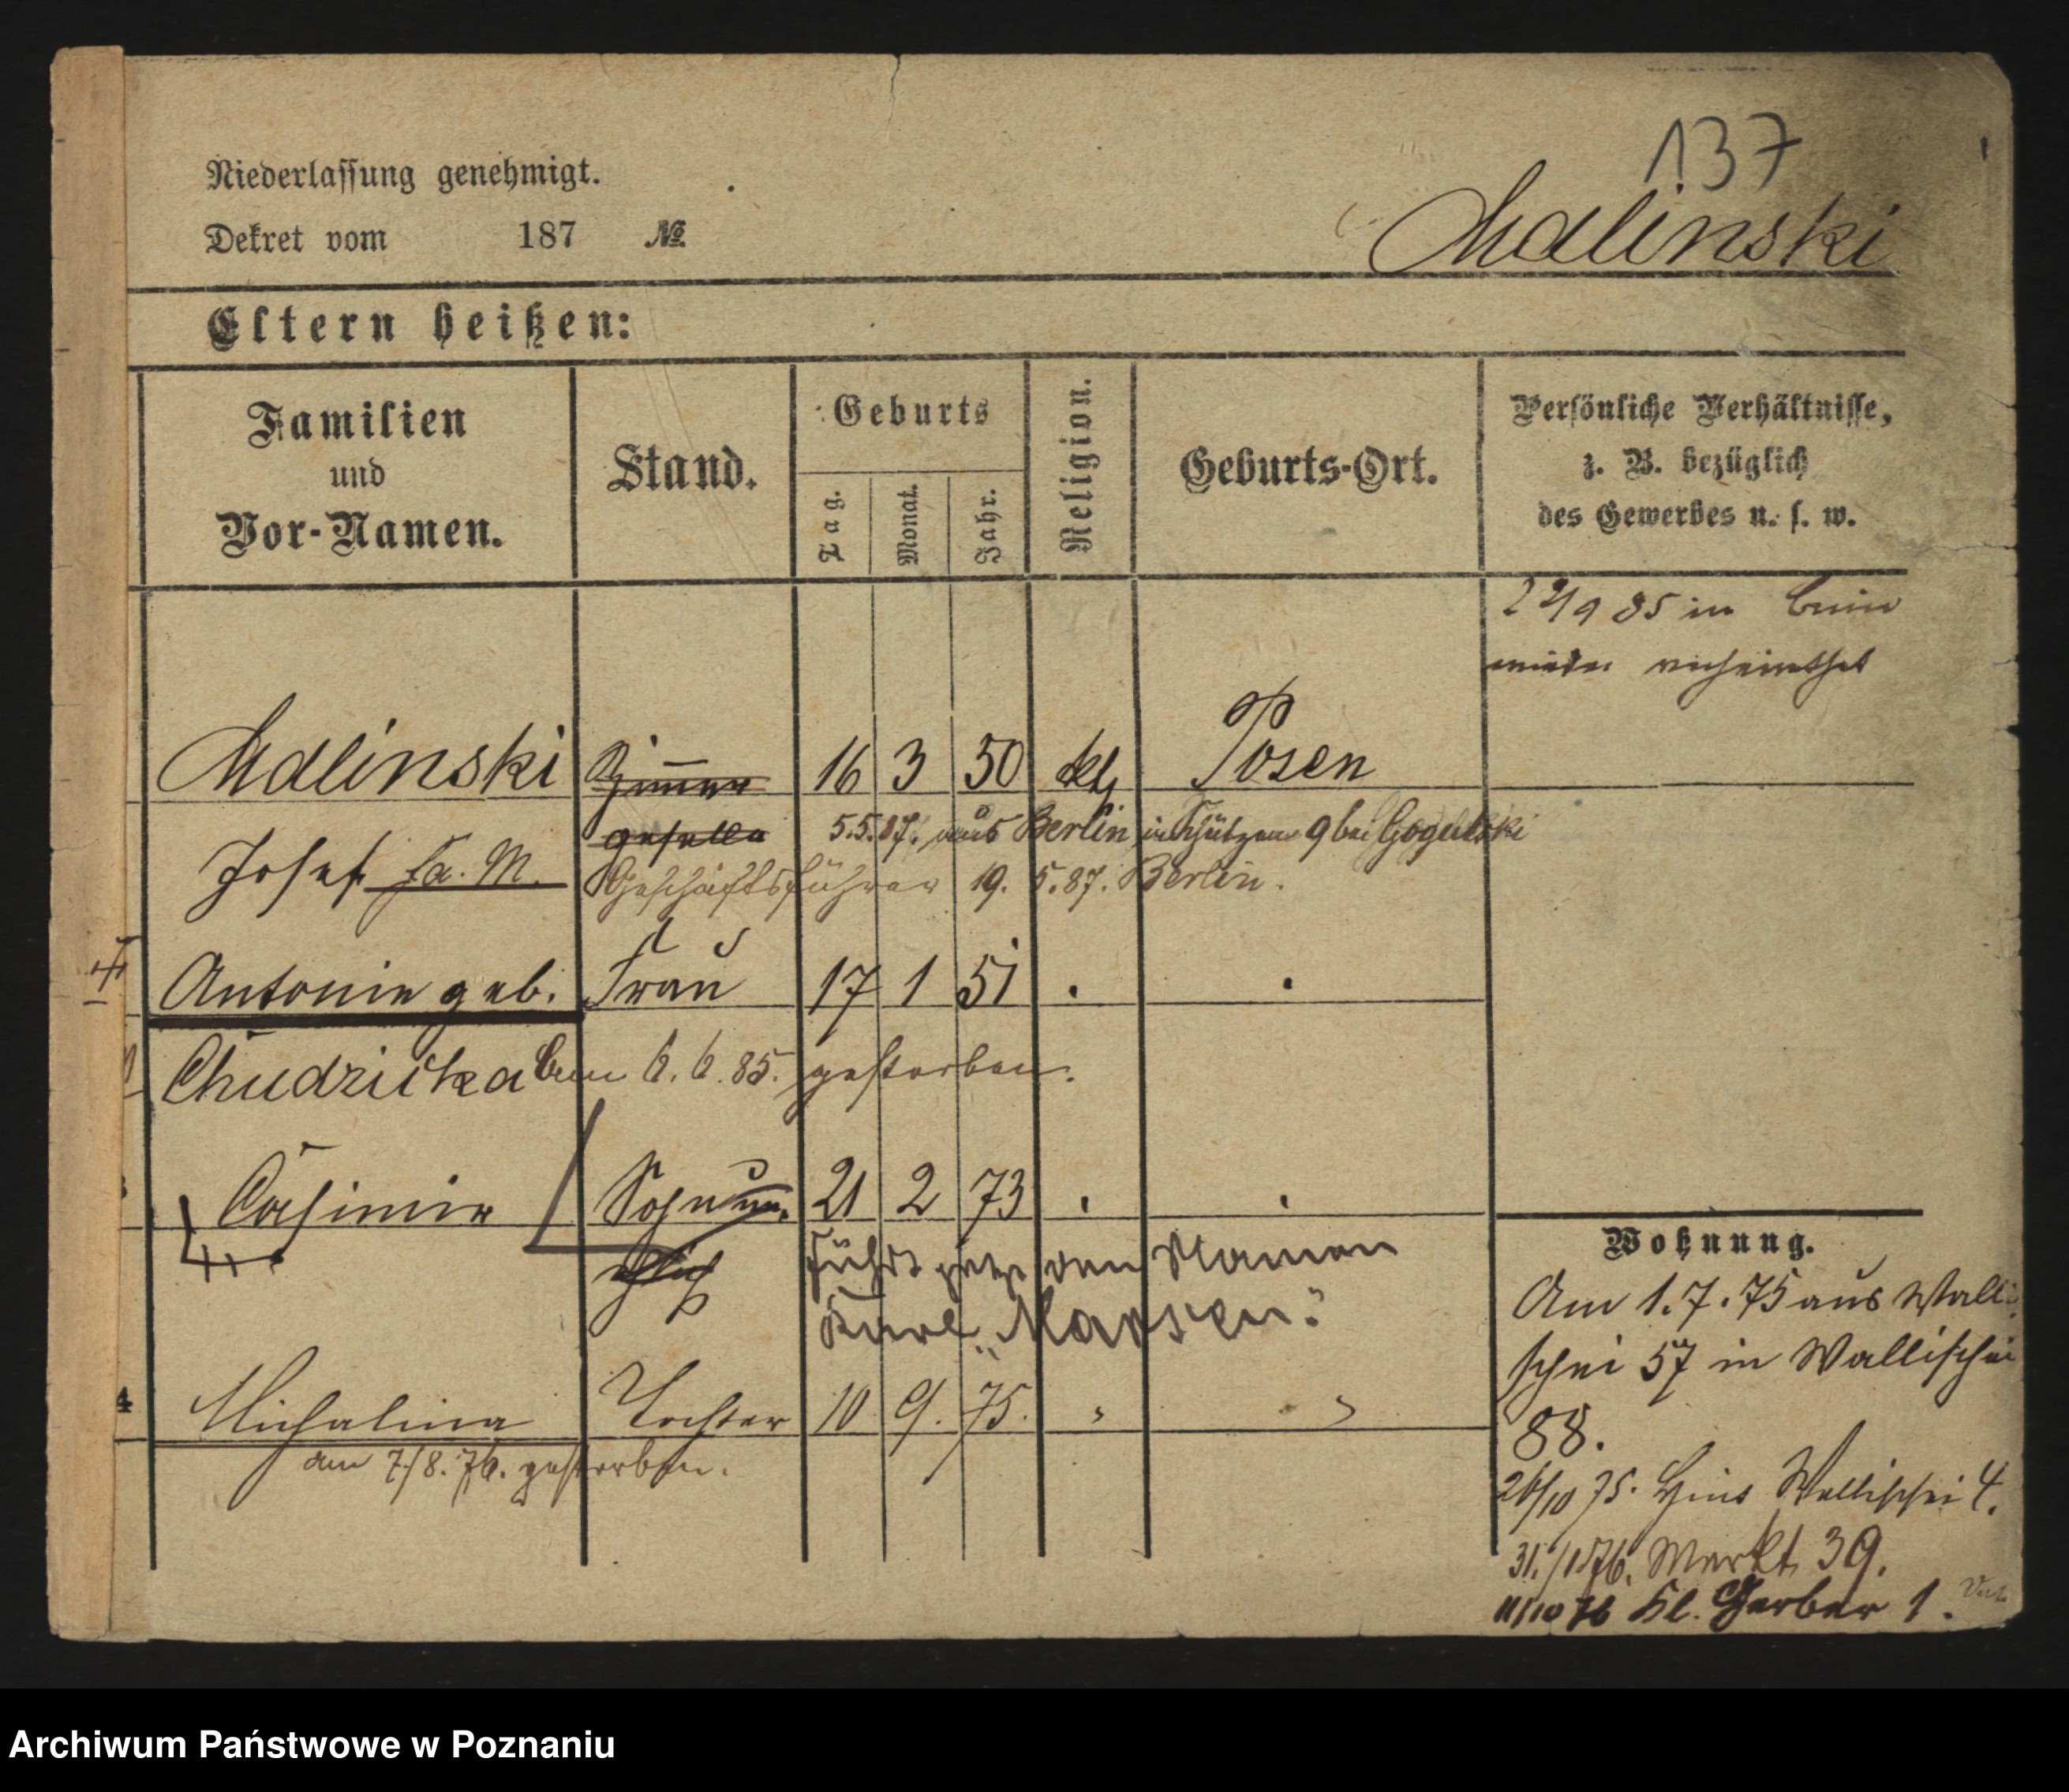 137
Malinski
Niederlassung genehmigt.
Dekret vom 187 №
Eltern heißen:
Familien und Vor-Namen.
Stand.
Geburts
Tag.
Monat.
Jahr.
Religion.
Geburts-Ort.
Persönliche Verhältnisse,
z. B. bezüglich
des Gewerbes u. s. w.
22/9 85 in
wieder verheirathet
Malinski Zimmer 16 3 50 kth Posen
geselle 5.5.87. aus Berlin in Schützen 9 bei Gogulski
Josef fa. M. Geschäftsführer 19. 5. 87. Berlin.
Antonie geb. Frau 17 1 51
Chudzicka am 6. 6. 85. gestorben.
Casimir Sohn un 21 2 73
ehlich führt jetzt den Namen
4 Michalina Tochter 10 9. 75.
am 7/8. 76. gestorben.
Wohnung.
Am 1.7.75 aus Walli
schei 57 in Wallischei
88.
26/10 75. Wallischei 4.
Markt 39.
11/10 76 Kl. Gerber 1.
Archiwum Państwowe w Poznaniu